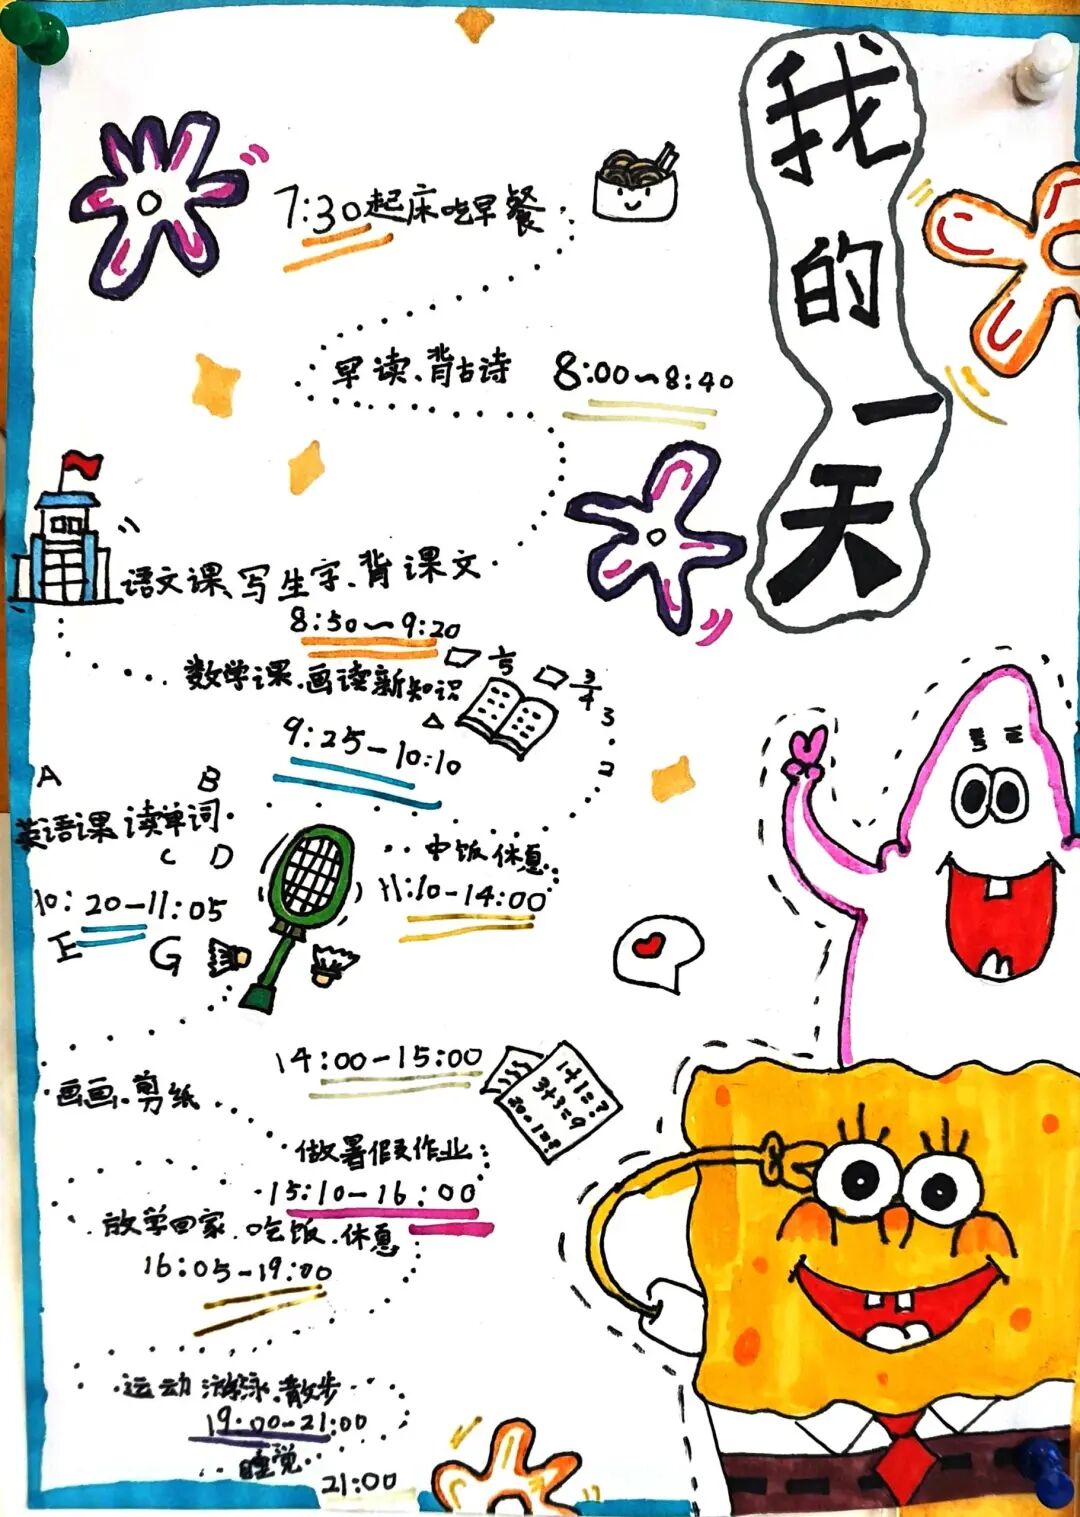 我的一天
7:30起床吃早餐
早读、背古诗 8:00~8:40
语文课、写生字、背课文
8:50~9:20
数学课、画读新知识
1/5 3/4
3
2
9:25-10:10
A B
英语课 读单词
C D
10:20-11:05
E G
中饭 休息
11:10-14:00
14:00-15:00
画画、剪纸
1+1=?
3+3=9
做暑假作业
15:10-16:00
放学回家、吃饭、休息
16:05-19:00
运动 游泳、散步
19:00-21:00
睡觉
21:00